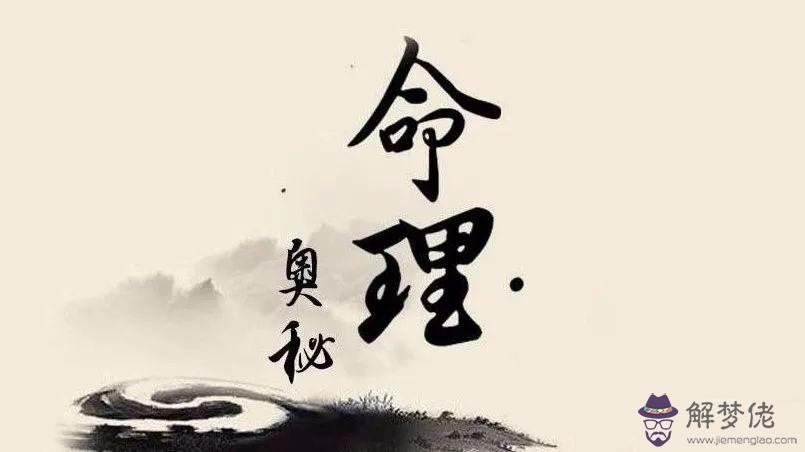 命理
奥秘
解梦佬
www.jiemenglao.com